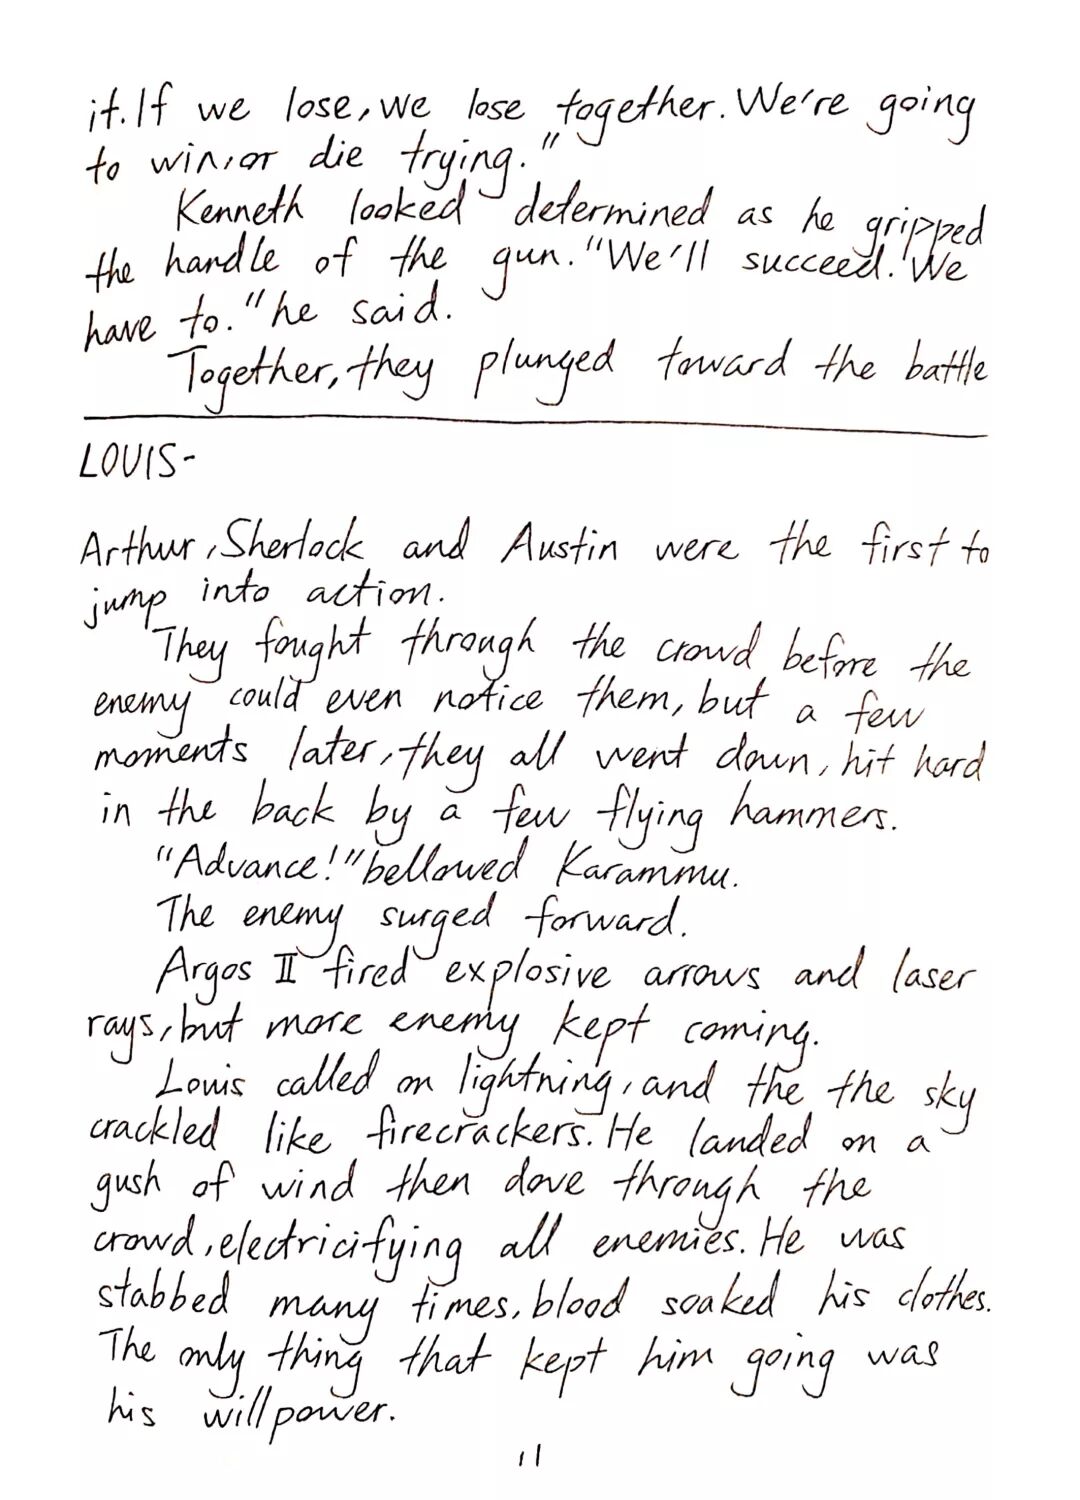 it. If we lose, we lose together. We're going
to win, or die trying."
Kenneth looked determined as he gripped
the handle of the gun. "We'll succeed. We
have to." he said.
Together, they plunged toward the battle
LOUIS-
Arthur, Sherlock and Austin were the first to
jump into action.
They fought through the crowd before the
enemy could even notice them, but a few
moments later, they all went down, hit hard
in the back by a few flying hammers.
"Advance!" bellowed Karammu.
The enemy surged forward.
Argos II fired explosive arrows and laser
rays, but more enemy kept coming.
Louis called on lightning, and the the sky
crackled like firecrackers. He landed on a
gush of wind then dove through the
crowd, electricifying all enemies. He was
stabbed many times, blood soaked his clothes.
The only thing that kept him going was
his willpower.
11